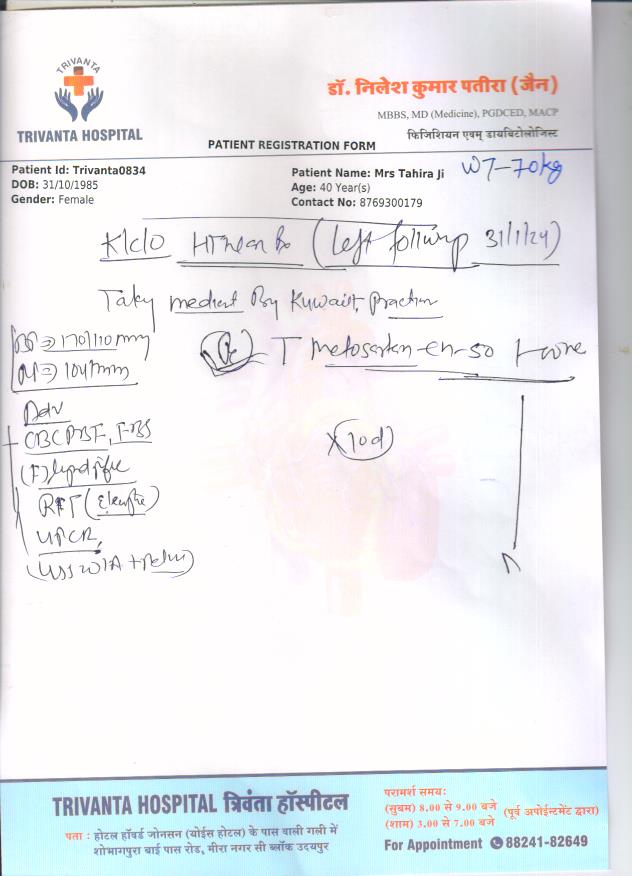 TRIVANTA
TRIVANTA HOSPITAL
डॉ. निलेश कुमार पतीरा (जैन)
MBBS, MD (Medicine), PGDCED, MACP
फिजिशियन एवम् डायबिटोलोजिस्ट
PATIENT REGISTRATION FORM
Patient Id: Trivanta0834
DOB: 31/10/1985
Gender: Female
Patient Name: Mrs Tahira Ji
Age: 40 Year(s)
Contact No: 8769300179
WT-70kg
K/c/o (left follwup 31/1/24)
Taky By Kuwait
BP ⇒ 170/110 mm
⇒ 104/mm
T Metosartan-en-50
Adv
CBC PBF, FBS
(F)
RFT
UPCR,
x (10d)
TRIVANTA HOSPITAL त्रिवंता हॉस्पीटल
पता : होटल हॉवर्ड जोनसन (योईस होटल) के पास वाली गली में
शोभागपुरा बाई पास रोड, मीरा नगर सी ब्लॉक उदयपुर
परामर्श समय:
(सुबम) 8.00 से 9.00 बजे
(शाम) 3.00 से 7.00 बजे
(पूर्व अपोईन्टमेंट द्वारा)
For Appointment 88241-82649